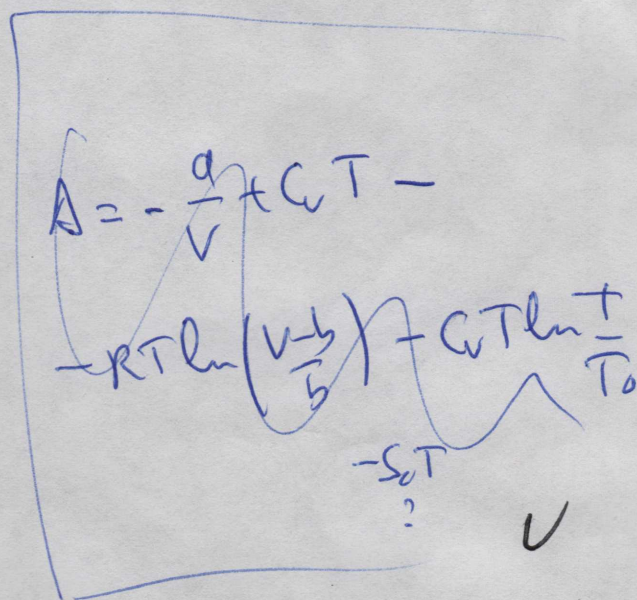 A = - a/V + CvT -
- RT ln((V-b)/b) - CvT ln T/T0
-S0T
?
V